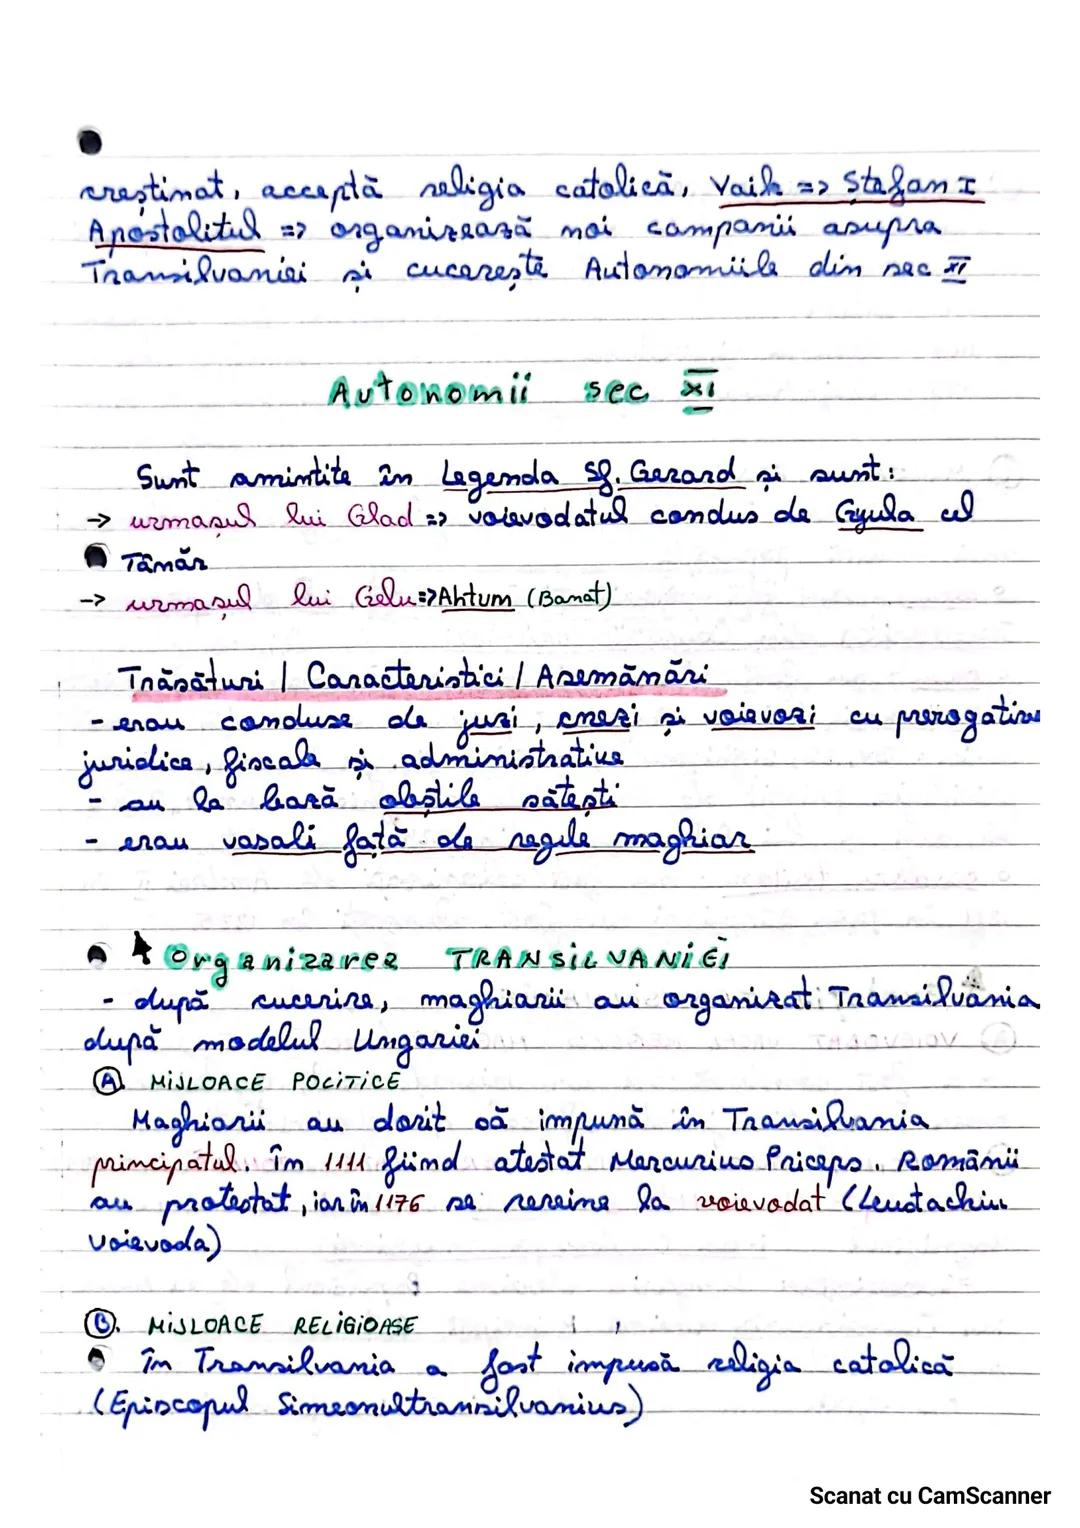 creștinat, acceptă religia catolică, Vaik => Ștefan I
Apostolitul => organizează noi campanii asupra
Transilvaniei și cucerește Autonomiile din sec XI
Autonomii sec XI
Sunt amintite în Legenda Sf. Gerard și sunt:
-> urmașul lui Glad => voievodatul condus de Gyula cel
Tânăr
-> urmașul lui Gelu => Ahtum (Banat)
Trăsături / Caracteristici / Asemănări
- erau conduse de juzi, cnezi și voievozi cu prerogative
juridice, fiscale și administrative
- au la bază obștile sătești
- erau vasali față de regele maghiar
Organizarea TRANSILVANIEI
- după cucerire, maghiarii au organizat Transilvania
după modelul Ungariei
A. MIJLOACE POLITICE
Maghiarii au dorit să impună în Transilvania
principatul. În 1111 fiind atestat Mercurius Priceps. Românii
au protestat, iar în 1176 se revine la voievodat (Leustachiu
voievoda)
B. MIJLOACE RELIGIOASE
În Transilvania a fost impusă religia catolică
(Episcopul Simeonultransilvanius)
Scanat cu CamScanner